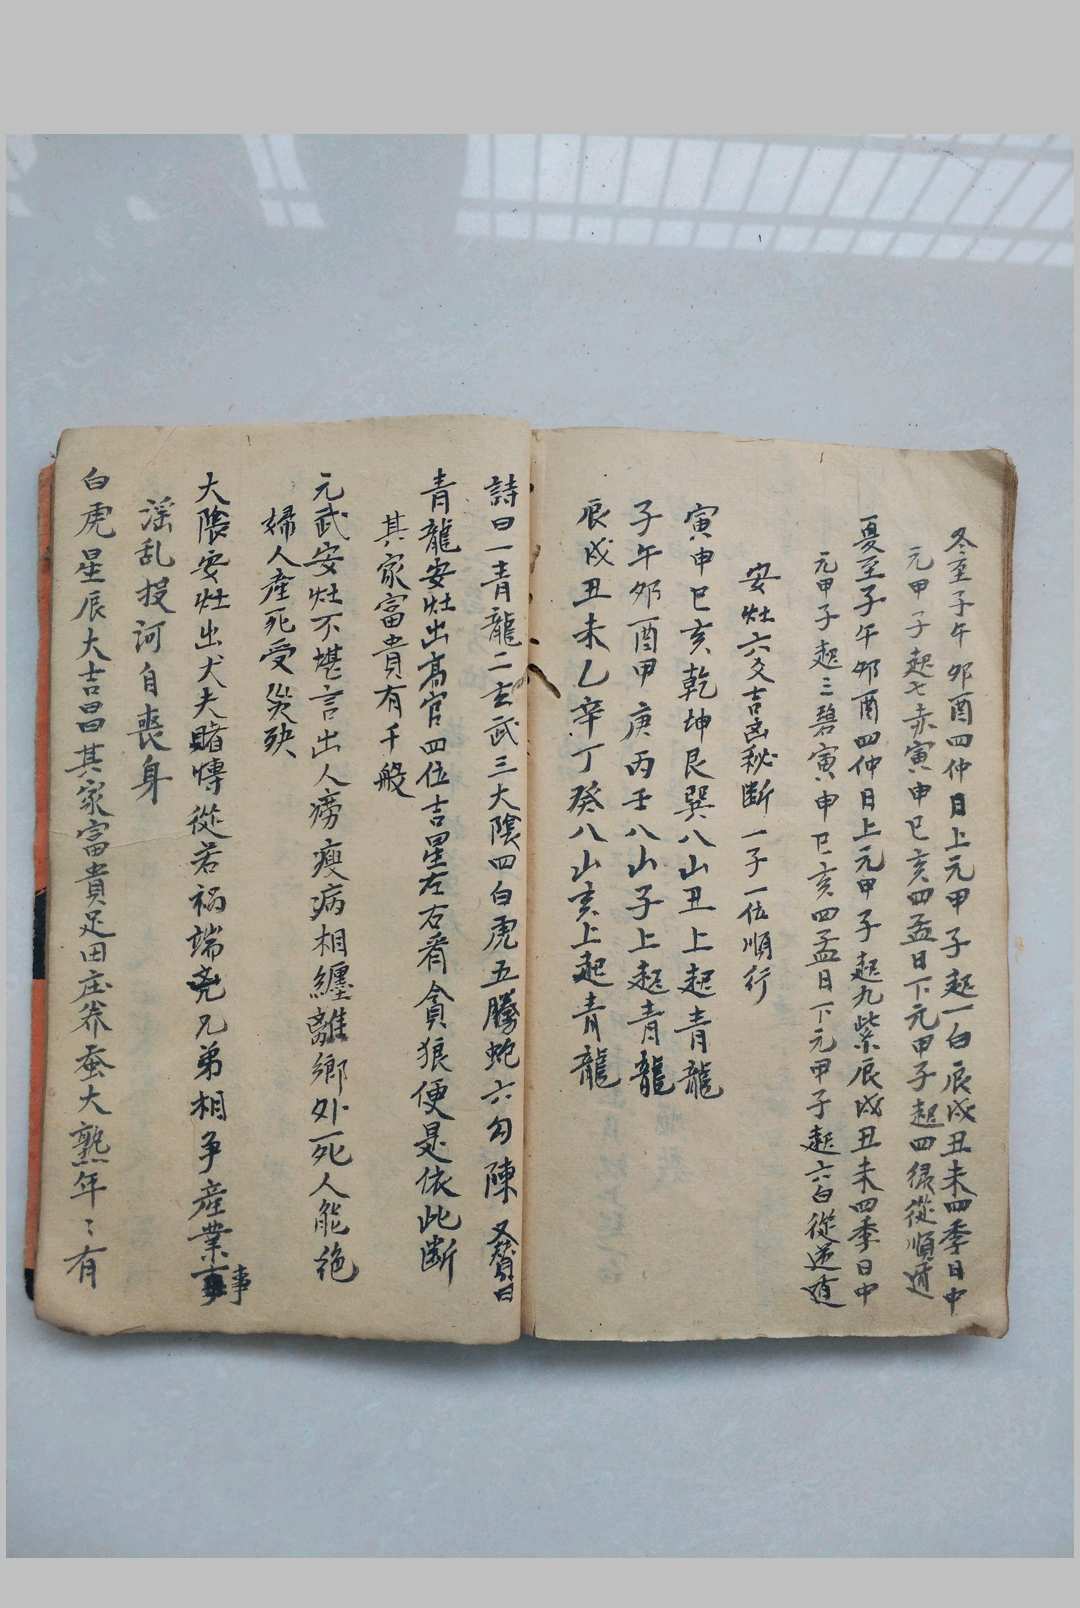 冬至子午夘酉四仲日上元甲子起一白辰戌丑未四季日中
元甲子起七赤寅申巳亥四孟日下元甲子起四緑從順遁
夏至子午夘酉四仲日上元甲子起九紫辰戌丑未四季日中
元甲子起三碧寅申巳亥四孟日下元甲子起六白從逆遁
安灶六爻吉凶秘断一子一位順行
寅申巳亥乾坤艮巽八山丑上起青龍
子午夘酉甲庚丙壬八山子上起青龍
辰戌丑未乙辛丁癸八山亥上起青龍
詩曰一青龍二玄武三大陰四白虎五騰蛇六勾陳 又賛曰
青龍安灶出高官四位吉星左右看貪狼便是依此断
其家富貴有千般
元武安灶不堪言出人癆瘦病相纏離鄉外死人能绝
婦人產死受災殃
大陰安灶出犬夫賭愽從若禍端尭兄弟相争産業事事
滛乱投河自喪身
白虎星辰大吉昌其家富貴足田庄养蚕大熟年〻有